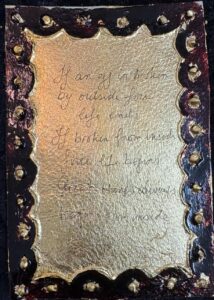 If an egg is broken
by outside force
life ends
If broken from inside
life begins
Great things always
begin from inside